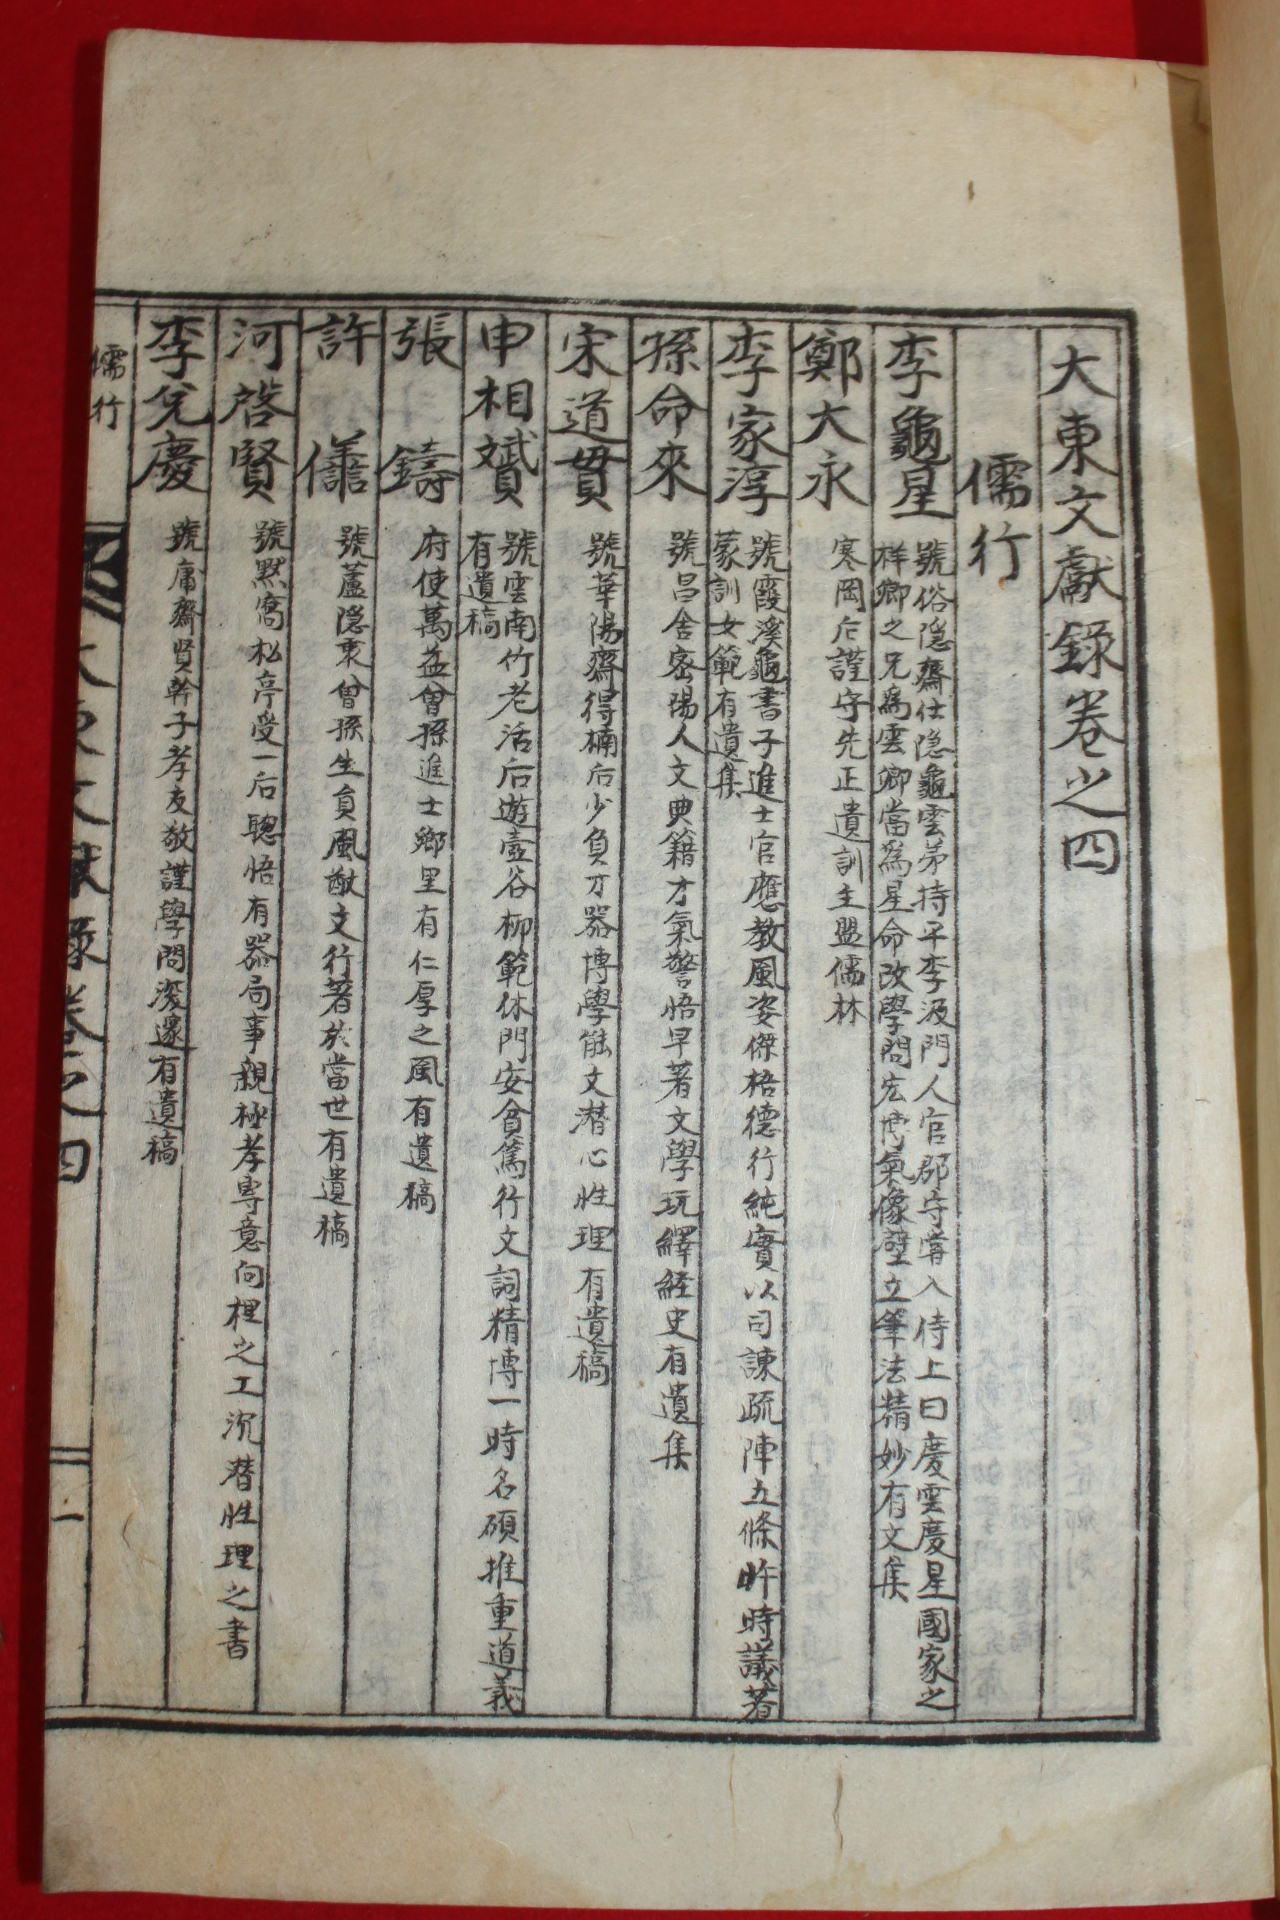 大東文獻錄卷之四
儒行
李龜星 號俗隱齋仕隐龜雲弟持平李汲門人官郡守嘗入侍上曰慶雲慶星國家之
祥卿之兄爲雲卿當爲星命改學問宏博氣像壁立筆法精妙有文集
鄭大永 寒岡后謹守先正遺訓主盟儒林
李家淳 號霞溪龜書子進士官應教風姿傑梧德行純實以司諫疏陣五條昨時議著
蒙訓女範有遺集
孫命來 號昌舍密陽人文典籍才氣警悟早著文學玩繹経史有遺集
宋道貫 號華陽齋得楠后少負才器博學能文潜心性理有遺稿
申相贇 號雲南竹老活后遊壼谷柳範休門安貧篤行文詞精博一時名碩推重道義
有遺稿
張鑄 府使萬益曾孫進士鄉里有仁厚之風有遺稿
許僐 號蘆隱東曾孫生負風猷文行著扵當世有遺稿
河啓賢 號黙窩松亭受一后聰悟有器局事親極孝專意向裡之工沉潜性理之書
李兌慶 號庸齋賢幹子孝友敬謹學問深邃有遺稿
儒行
大東文獻錄卷之四
一